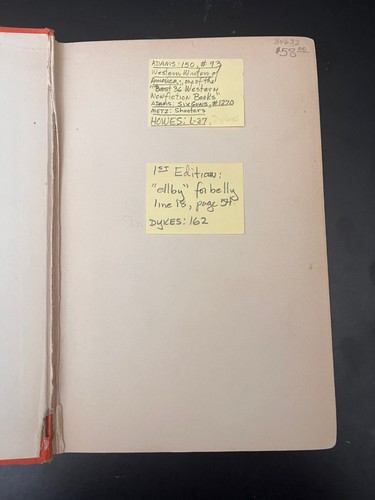 34633
$58.00
ADAMS-150, #93
Western Writers of
America, one of the
"Best 36 Western
Nonfiction Books"
ADAMS: SIX GUNS, #1270
METZ: Shooters
HOWES: L-27,
1ST Edition:
"ellby" for belly
line 18, page 54
DYKES: 162